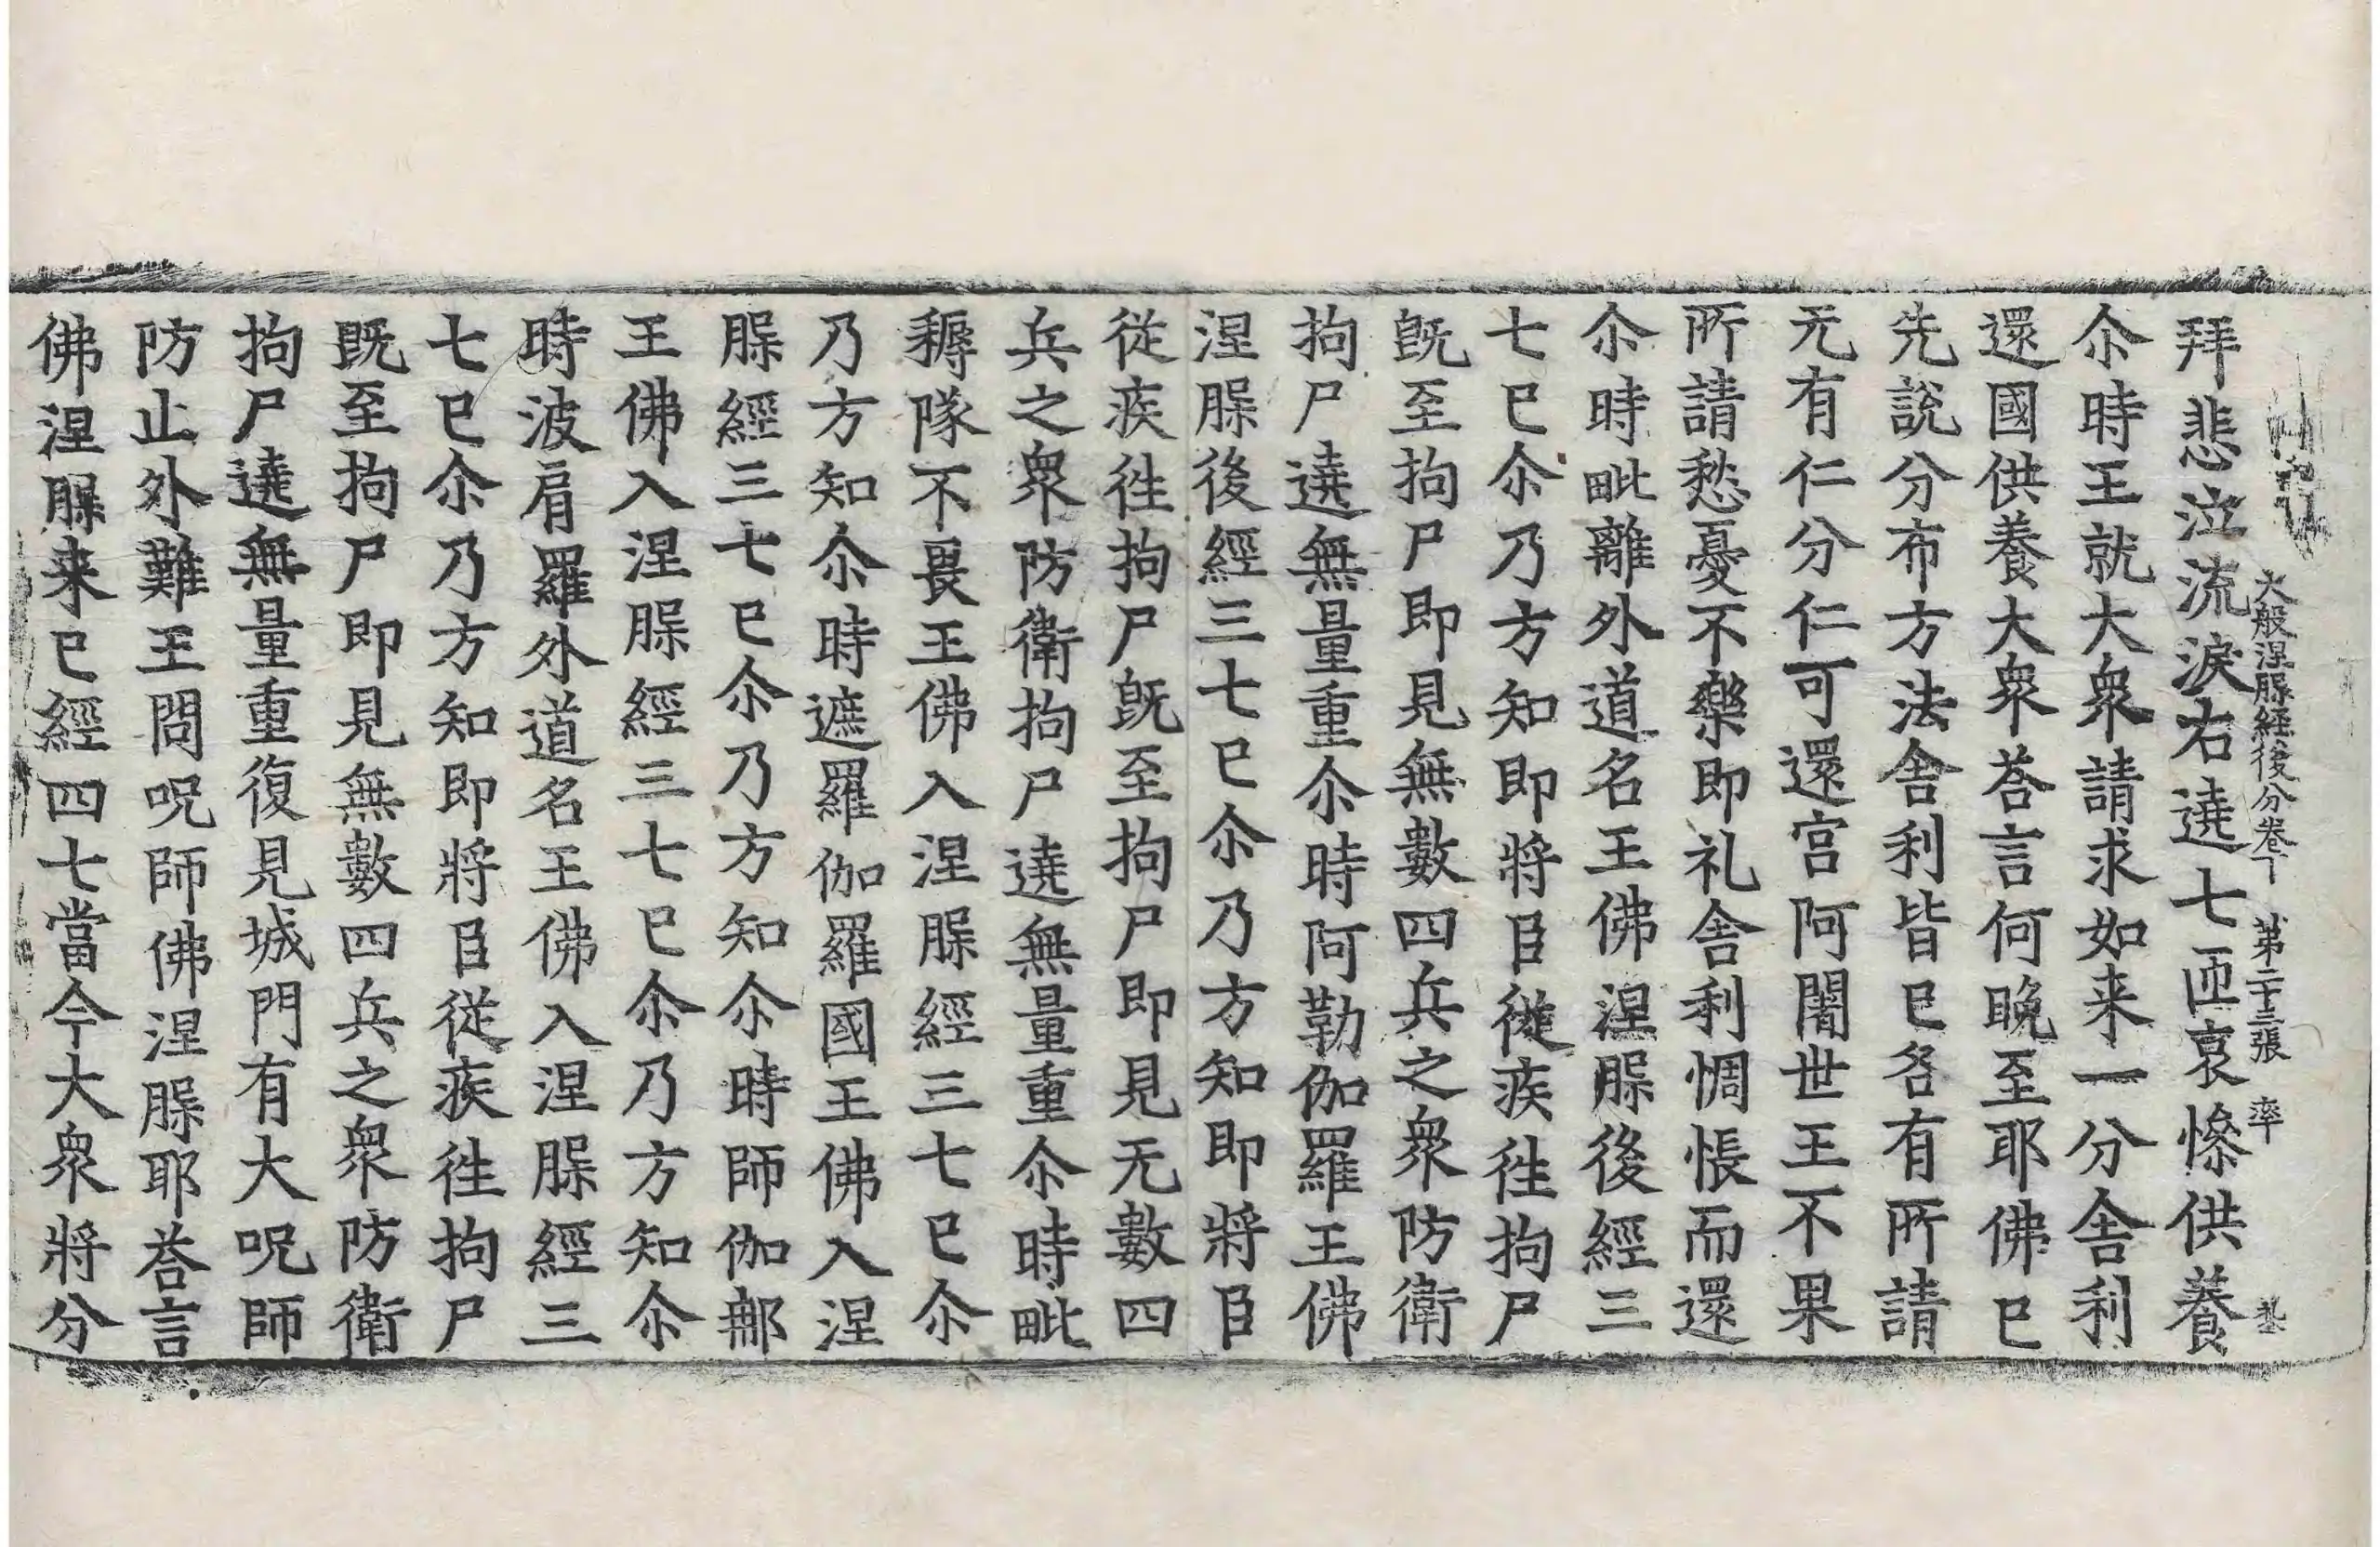 大般涅槃經後分卷下　第二十三張　率
拜悲泣流淚右遶七匝哀慘供養
尒時王就大衆請求如来一分舍利
還國供養大衆荅言何晚至耶佛已
先說分布方法舍利皆已各有所請
无有仁分仁可還宫阿闍世王不果
所請愁憂不樂即礼舍利惆悵而還
尒時毗離外道名王佛涅槃後經三
七已尒乃方知即將臣從疾往拘尸
旣至拘尸即見無數四兵之衆防衛
拘尸遶無量重尒時阿勒伽羅王佛
涅槃後經三七已尒乃方知即將臣
從疾往拘尸旣至拘尸即見无數四
兵之衆防衛拘尸遶無量重尒時毗
耨隊不畏王佛入涅槃經三七已尒
乃方知尒時遮羅伽羅國王佛入涅
槃經三七已尒乃方知尒時師伽䣝
王佛入涅槃經三七已尒乃方知尒
時波肩羅外道名王佛入涅槃經三
七已尒乃方知即將臣從疾往拘尸
旣至拘尸即見無數四兵之衆防衛
拘尸遶無量重復見城門有大呪師
防止外難王問呪師佛涅槃耶荅言
佛涅槃来已經四七當今大衆將分